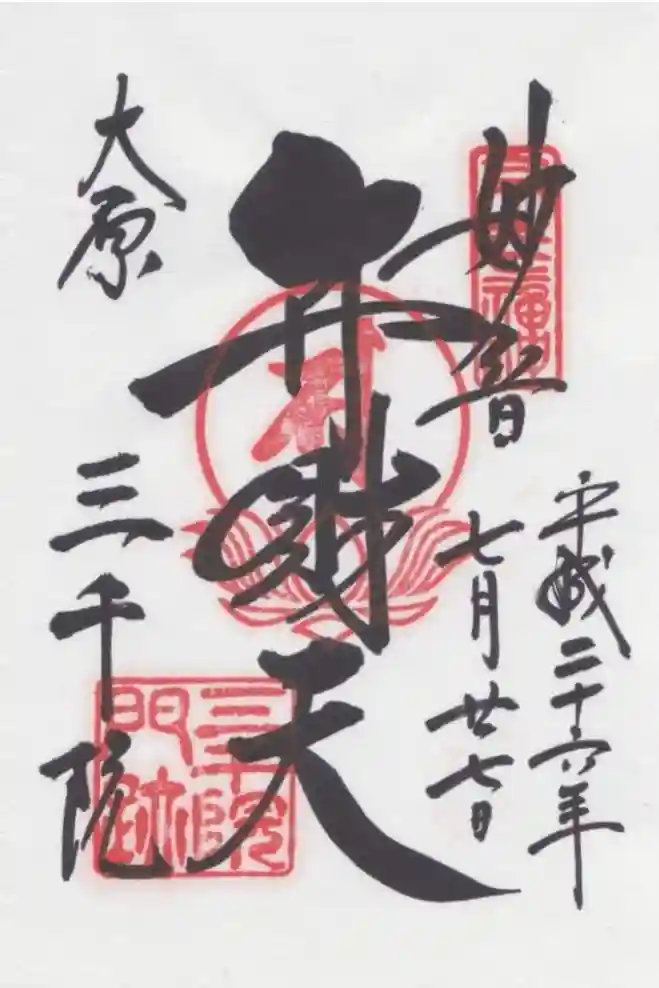 妙音
平成二十六年
七月廿七日
弁財天
大原
三千院
三千院
門跡